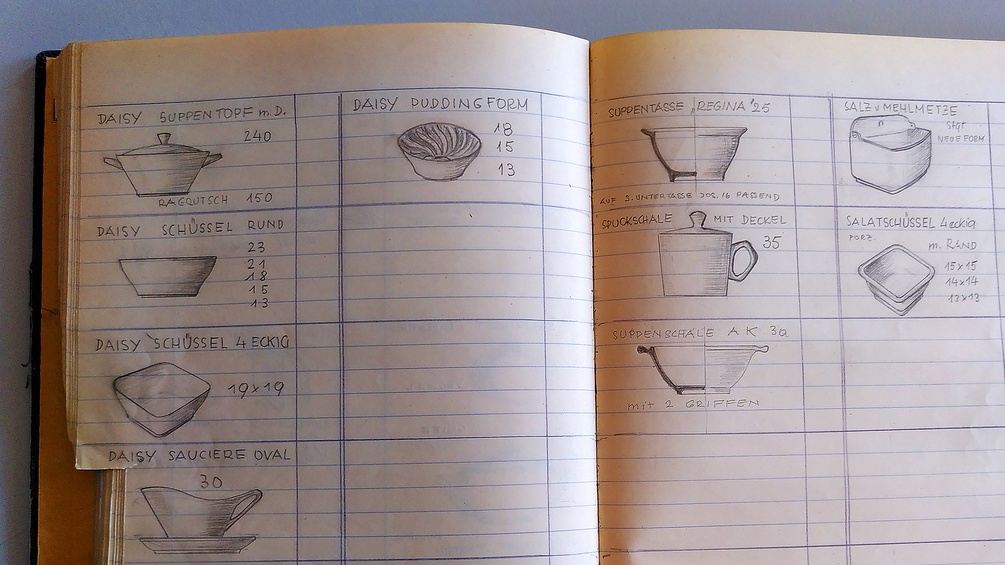 DAISY SUPPENTOPF m.D.
240
RAGOUTSCH 150
DAISY SCHÜSSEL RUND
23
21
18
15
13
DAISY SCHÜSSEL 4 ECKIG
19x19
DAISY SAUCIERE OVAL
30
DAISY PUDDINGFORM
18
15
13
SUPPENTASSE „REGINA" 25
AUF S. UNTERTASSE JOS. 16 PASSEND
SPUCKSCHALE MIT DECKEL
35
SUPPENSCHALE A K 30
mit 2 GRIFFEN
SALZ u MEHLMETZE
Stgt
NEUE FORM
SALATSCHÜSSEL 4eckig
PORZ
m. RAND
15x15
14x14
13x13